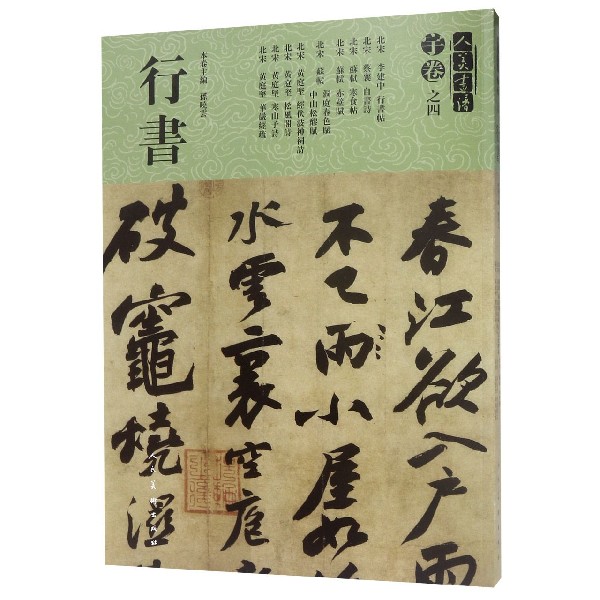 人美書譜
宇卷之四
北宋 李建中 行書帖
北宋 蔡襄 自書詩
北宋 蘇軾 寒食帖
北宋 蘇軾 赤壁賦
北宋 蘇軾 洞庭春色賦
中山松醪賦
北宋 黃庭堅 經伏波神祠詩
北宋 黃庭堅 松風閣詩
北宋 黃庭堅 寒山子詩
北宋 黃庭堅 華嚴經疏
本卷主編 孫曉雲
行書
春江欲入戶雨
不已雨小屋如
水雲裏空庖
破竈燒溼
人民美術出版社